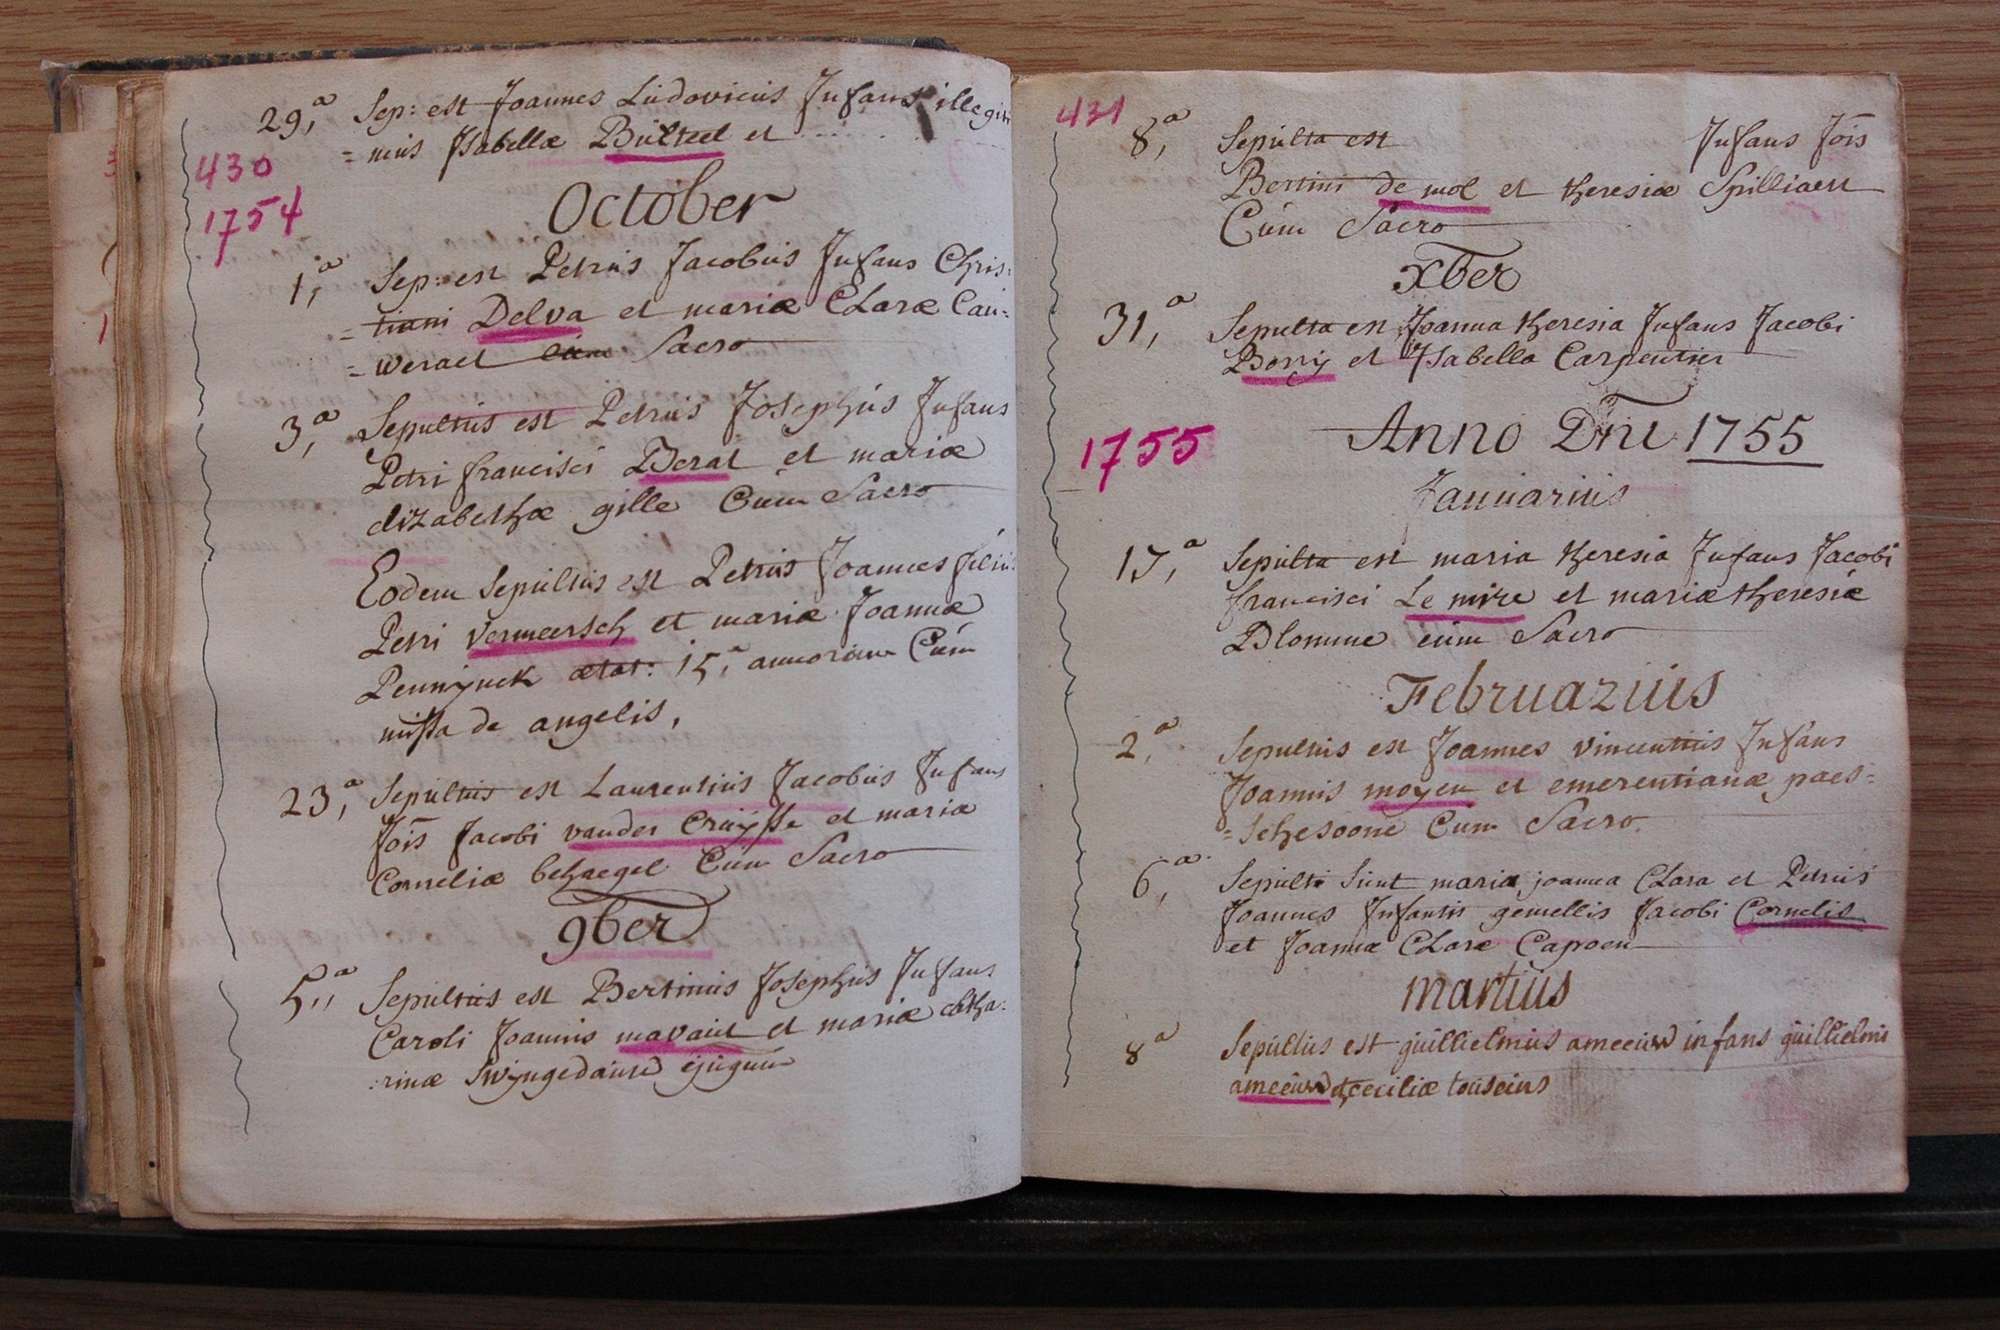 29,a Sep: est Joannes Ludovicus Infans illegiti
= mus Isabellæ Bulteel et ......
430
1754
October
1,a Sep: est Petrus Jacobus Infans Chris:
= tiani Delva et mariæ Claræ Cau=
= weraet cum Sacro
3,a Sepultus est Petrus Josephus Infans
Petri francisci Derat et mariæ
elizabethæ gille Cum Sacro
Eodem Sepultus est Petrus Joannes filius
Petri Vermeersch et mariæ Joannæ
Pennynck ætat: 15,a annorum Cum
missa de angelis,
23,a Sepultus est Laurentius Jacobus Infans
Jois Jacobi vander Cruysse et mariæ
Corneliæ behaegel Cum Sacro
9ber
5,a Sepultus est Bertinus Josephus Infans
Caroli Joannis mavaut et mariæ catha:
rinæ Swyngedauw
431
8,a Sepulta est Infans Jois
Bertini de mol et theresiæ Spilliaert
Cum Sacro
xber
31,a Sepulta est Joanna theresia Infans Jacobi
Borry et Isabella Carpentier
Anno Dni 1755
1755
Januarius
17,a Sepulta est maria theresia Infans Jacobi
francisci Le mire et mariæ theresiæ
Dlomme cum Sacro
Februarius
2,a Sepultus est Joannes vincentius Infans
Joannis moyen et emerentianæ paes=
= schesoone Cum Sacro
6,a Sepulti Sunt maria joanna Clara et Petrus
Joannes Infantis gemellis Jacobi Cornelis
et Joannæ Claræ Capoen
martius
8a Sepultus est guillielmus ameeuw infans guillielmi
ameeuw et ceciliæ touseins